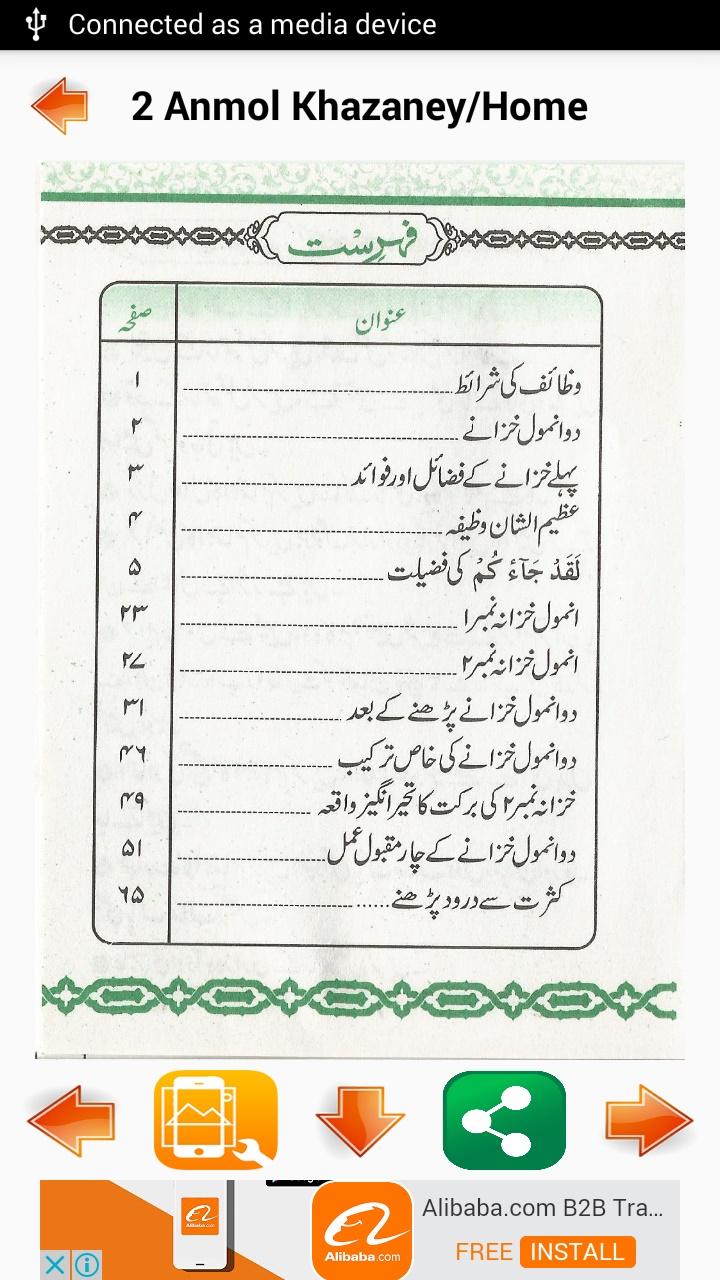 Connected as a media device
2 Anmol Khazaney/Home
فہرست
عنوان صفحہ
وظائف کی شرائط ۱
دو انمول خزانے ۲
پہلے خزانے کے فضائل اور فوائد ۳
عظیم الشان وظیفہ ۴
لَقَدْ جَآءَ کُمْ کی فضیلت ۵
انمول خزانہ نمبر۱ ۲۳
انمول خزانہ نمبر۲ ۲۷
دو انمول خزانے پڑھنے کے بعد ۳۱
دو انمول خزانے کی خاص ترکیب ۴۶
خزانہ نمبر۲ کی برکت کا تحیر انگیز واقعہ ۴۹
دو انمول خزانے کے چار مقبول عمل ۵۱
کثرت سے درود پڑھنے...... ۶۵
Alibaba.com
Alibaba.com
Alibaba.com B2B Tra...
FREE INSTALL